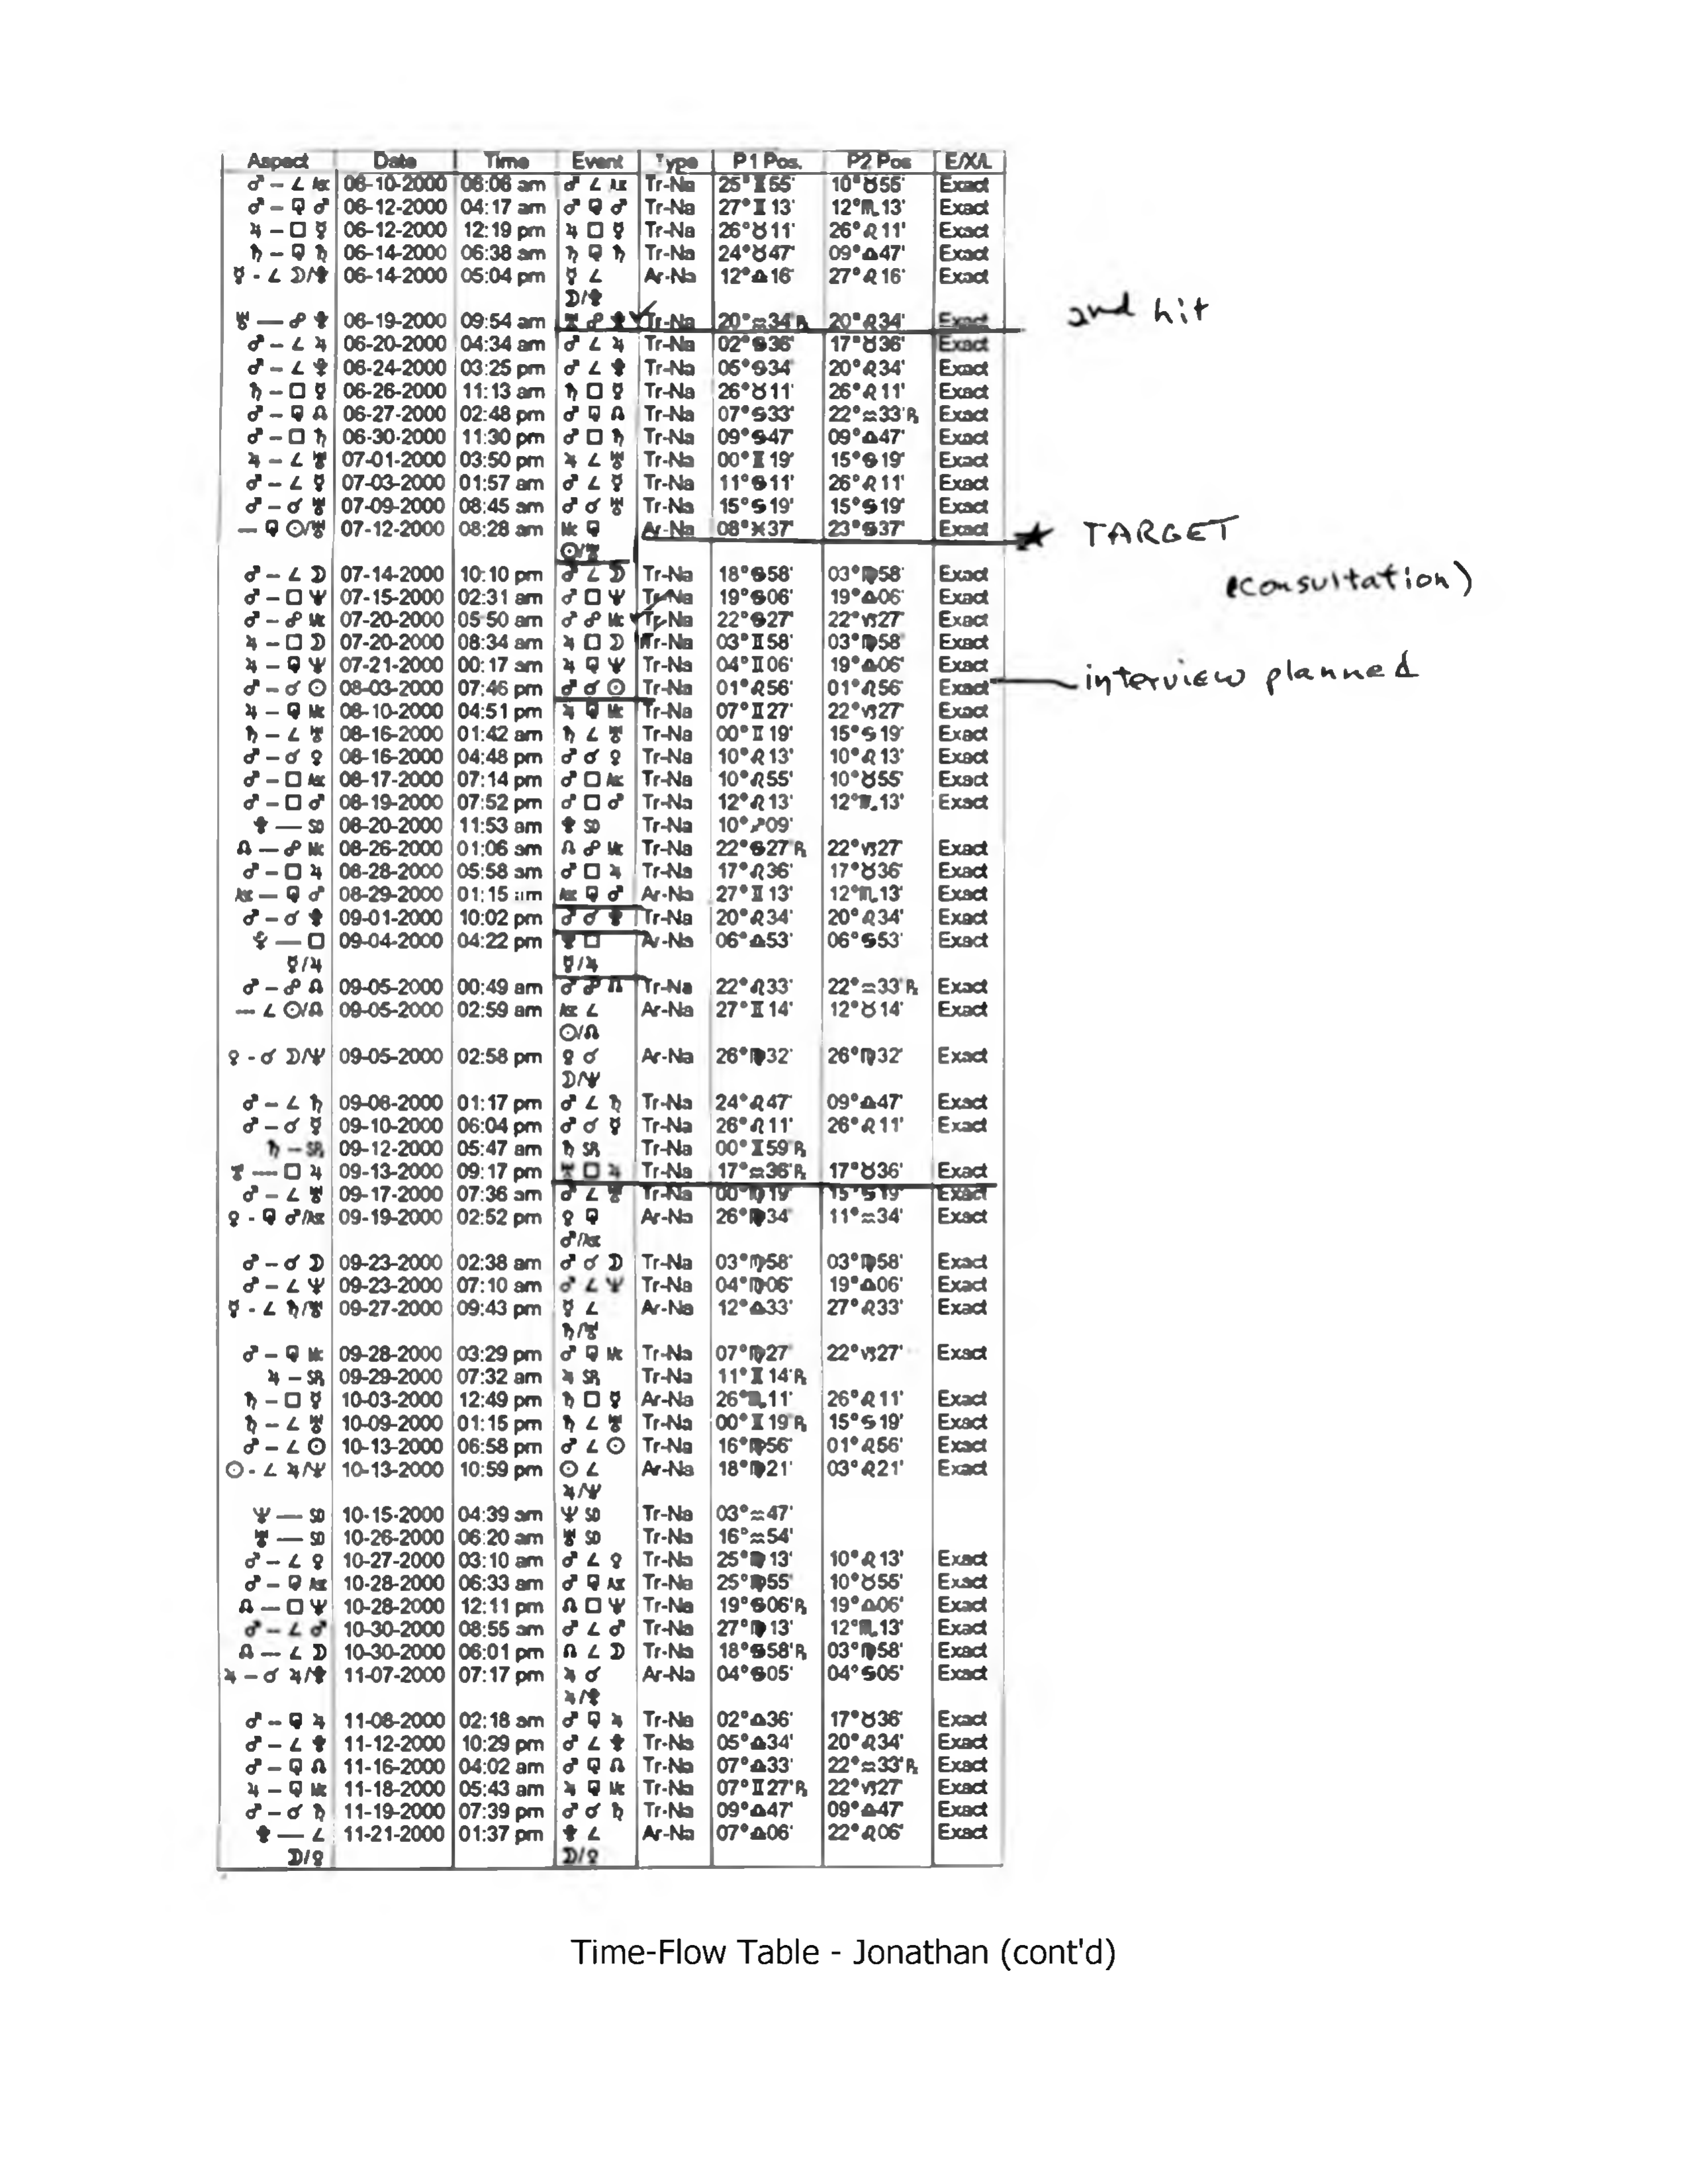 Aspect Date Time Event Type P1 Pos. P2 Pos E/X/L
♂ – ∠ Asc 06-10-2000 06:06 am ♂ ∠ Asc Tr-Na 25°♊55' 10°♉55' Exact
♂ – ⚼ ♂ 06-12-2000 04:17 am ♂ ⚼ ♂ Tr-Na 27°♊13' 12°♏13' Exact
♃ – □ ☿ 06-12-2000 12:19 pm ♃ □ ☿ Tr-Na 26°♉11' 26°♌11' Exact
♄ – ⚼ ♄ 06-14-2000 06:38 am ♄ ⚼ ♄ Tr-Na 24°♉47' 09°♎47' Exact
☿ - ∠ ☽/♆ 06-14-2000 05:04 pm ☿ ∠ Ar-Na 12°♎16' 27°♌16' Exact
☽/♇
♅ — ☍ ♇ 06-19-2000 09:54 am ♅ ☍ ♇ Tr-Na 20°♒34'℞ 20°♌34' Exact
2nd hit
♂ – ∠ ♃ 06-20-2000 04:34 am ♂ ∠ ♃ Tr-Na 02°♋36' 17°♉36' Exact
♂ – ∠ ♇ 06-24-2000 03:25 pm ♂ ∠ ♇ Tr-Na 05°♋34' 20°♌34' Exact
♄ – □ ☿ 06-26-2000 11:13 am ♄ □ ☿ Tr-Na 26°♉11' 26°♌11' Exact
♂ – ⚼ ☊ 06-27-2000 02:48 pm ♂ ⚼ ☊ Tr-Na 07°♋33' 22°♒33'℞ Exact
♂ – □ ♄ 06-30-2000 11:30 pm ♂ □ ♄ Tr-Na 09°♋47' 09°♎47' Exact
♃ – ∠ ♅ 07-01-2000 03:50 pm ♃ ∠ ♅ Tr-Na 00°♊19' 15°♋19' Exact
♂ – ∠ ☿ 07-03-2000 01:57 am ♂ ∠ ☿ Tr-Na 11°♋11' 26°♌11' Exact
♂ – ☌ ♅ 07-09-2000 08:45 am ♂ ☌ ♅ Tr-Na 15°♋19' 15°♋19' Exact
— ⚼ ☉/♅ 07-12-2000 08:28 am Mc ⚼ Ar-Na 08°♓37' 23°♋37' Exact
☉/♅
★ TARGET
(consultation)
♂ – ∠ ☽ 07-14-2000 10:10 pm ♂ ∠ ☽ Tr-Na 18°♋58' 03°♍58' Exact
♂ – □ ♆ 07-15-2000 02:31 am ♂ □ ♆ Tr-Na 19°♋06' 19°♎06' Exact
♂ – ☍ Mc 07-20-2000 05:50 am ♂ ☍ Mc Tr-Na 22°♋27' 22°♑27' Exact
♃ – □ ☽ 07-20-2000 08:34 am ♃ □ ☽ Tr-Na 03°♊58' 03°♍58' Exact
♃ – ⚼ ♆ 07-21-2000 00:17 am ♃ ⚼ ♆ Tr-Na 04°♊06' 19°♎06' Exact
♂ – ☌ ☉ 08-03-2000 07:46 pm ♂ ☌ ☉ Tr-Na 01°♌56' 01°♌56' Exact
interview planned
♃ – ⚼ Mc 08-10-2000 04:51 pm ♃ ⚼ Mc Tr-Na 07°♊27' 22°♑27' Exact
♄ – ∠ ♅ 08-16-2000 01:42 am ♄ ∠ ♅ Tr-Na 00°♊19' 15°♋19' Exact
♂ – ☌ ♀ 08-16-2000 04:48 pm ♂ ☌ ♀ Tr-Na 10°♌13' 10°♌13' Exact
♂ – □ Asc 08-17-2000 07:14 pm ♂ □ Asc Tr-Na 10°♌55' 10°♉55' Exact
♂ – □ ♂ 08-19-2000 07:52 pm ♂ □ ♂ Tr-Na 12°♌13' 12°♏13' Exact
♇ — SD 08-20-2000 11:53 am ♇ SD Tr-Na 10°♐09'
☊ — ☍ Mc 08-26-2000 01:06 am ☊ ☍ Mc Tr-Na 22°♋27'℞ 22°♑27' Exact
♂ – □ ♃ 08-28-2000 05:58 am ♂ □ ♃ Tr-Na 17°♌36' 17°♉36' Exact
Asc — ⚼ ♂ 08-29-2000 01:15 Asc ⚼ ♂ Ar-Na 27°♊13' 12°♏13' Exact
♂ – ☌ ♇ 09-01-2000 10:02 pm ♂ ☌ ♇ Tr-Na 20°♌34' 20°♌34' Exact
♆ — □ 09-04-2000 04:22 pm ♆ □ Ar-Na 06°♎53' 06°♋53' Exact
☿/♃ ☿/♃
♂ – ☍ ☊ 09-05-2000 00:49 am ♂ ☍ ☊ Tr-Na 22°♌33' 22°♒33'℞ Exact
— ∠ ☉/☊ 09-05-2000 02:59 am Asc ∠ Ar-Na 27°♊14' 12°♉14' Exact
☉/☊
♀ - ☌ ☽/♆ 09-05-2000 02:58 pm ♀ ☌ Ar-Na 26°♍32' 26°♍32' Exact
☽/♆
♂ – ∠ ♄ 09-08-2000 01:17 pm ♂ ∠ ♄ Tr-Na 24°♌47' 09°♎47' Exact
♂ – ☌ ☿ 09-10-2000 06:04 pm ♂ ☌ ☿ Tr-Na 26°♌11' 26°♌11' Exact
♄ – S℞ 09-12-2000 05:47 am ♄ S℞ Tr-Na 00°♊59'℞
♅ — □ ♃ 09-13-2000 09:17 pm ♅ □ ♃ Tr-Na 17°♒36'℞ 17°♉36' Exact
♂ – ∠ ♅ 09-17-2000 07:36 am ♂ ∠ ♅ Tr-Na 00°♍19' 15°♋19' Exact
♀ - ⚼ ♂/Asc 09-19-2000 02:52 pm ♀ ⚼ Ar-Na 26°♍34' 11°♒34' Exact
♂/Asc
♂ – ☌ ☽ 09-23-2000 02:38 am ♂ ☌ ☽ Tr-Na 03°♍58' 03°♍58' Exact
♂ – ∠ ♆ 09-23-2000 07:10 am ♂ ∠ ♆ Tr-Na 04°♍06' 19°♎06' Exact
☿ - ∠ ♄/♅ 09-27-2000 09:43 pm ☿ ∠ Ar-Na 12°♎33' 27°♌33' Exact
♄/♅
♂ – ⚼ Mc 09-28-2000 03:29 pm ♂ ⚼ Mc Tr-Na 07°♍27' 22°♑27' Exact
♃ – S℞ 09-29-2000 07:32 am ♃ S℞ Tr-Na 11°♊14'℞
♄ – □ ☿ 10-03-2000 12:49 pm ♄ □ ☿ Ar-Na 26°♏11' 26°♌11' Exact
♄ – ∠ ♅ 10-09-2000 01:15 pm ♄ ∠ ♅ Tr-Na 00°♊19'℞ 15°♋19' Exact
♂ – ∠ ☉ 10-13-2000 06:58 pm ♂ ∠ ☉ Tr-Na 16°♍56' 01°♌56' Exact
☉ - ∠ ♃/♆ 10-13-2000 10:59 pm ☉ ∠ Ar-Na 18°♍21' 03°♌21' Exact
♃/♆
♆ — SD 10-15-2000 04:39 am ♆ SD Tr-Na 03°♒47'
♅ — SD 10-26-2000 06:20 am ♅ SD Tr-Na 16°♒54'
♂ – ∠ ♀ 10-27-2000 03:10 am ♂ ∠ ♀ Tr-Na 25°♍13' 10°♌13' Exact
♂ – ⚼ Asc 10-28-2000 06:33 am ♂ ⚼ Asc Tr-Na 25°♍55' 10°♉55' Exact
☊ — □ ♆ 10-28-2000 12:11 pm ☊ □ ♆ Tr-Na 19°♋06'℞ 19°♎06' Exact
♂ – ∠ ♂ 10-30-2000 08:55 am ♂ ∠ ♂ Tr-Na 27°♍13' 12°♏13' Exact
☊ — ∠ ☽ 10-30-2000 06:01 pm ☊ ∠ ☽ Tr-Na 18°♋58'℞ 03°♍58' Exact
♃ – ☌ ♃/♇ 11-07-2000 07:17 pm ♃ ☌ Ar-Na 04°♋05' 04°♋05' Exact
♃/♇
♂ – ⚼ ♃ 11-08-2000 02:18 am ♂ ⚼ ♃ Tr-Na 02°♎36' 17°♉36' Exact
♂ – ∠ ♇ 11-12-2000 10:29 pm ♂ ∠ ♇ Tr-Na 05°♎34' 20°♌34' Exact
♂ – ⚼ ☊ 11-16-2000 04:02 am ♂ ⚼ ☊ Tr-Na 07°♎33' 22°♒33'℞ Exact
♃ – ⚼ Mc 11-18-2000 05:43 am ♃ ⚼ Mc Tr-Na 07°♊27'℞ 22°♑27' Exact
♂ – ☌ ♄ 11-19-2000 07:39 pm ♂ ☌ ♄ Tr-Na 09°♎47' 09°♎47' Exact
♇ — ∠ 11-21-2000 01:37 pm ♇ ∠ Ar-Na 07°♎06' 22°♌06' Exact
☽/♀ ☽/♀
Time-Flow Table - Jonathan (cont'd)